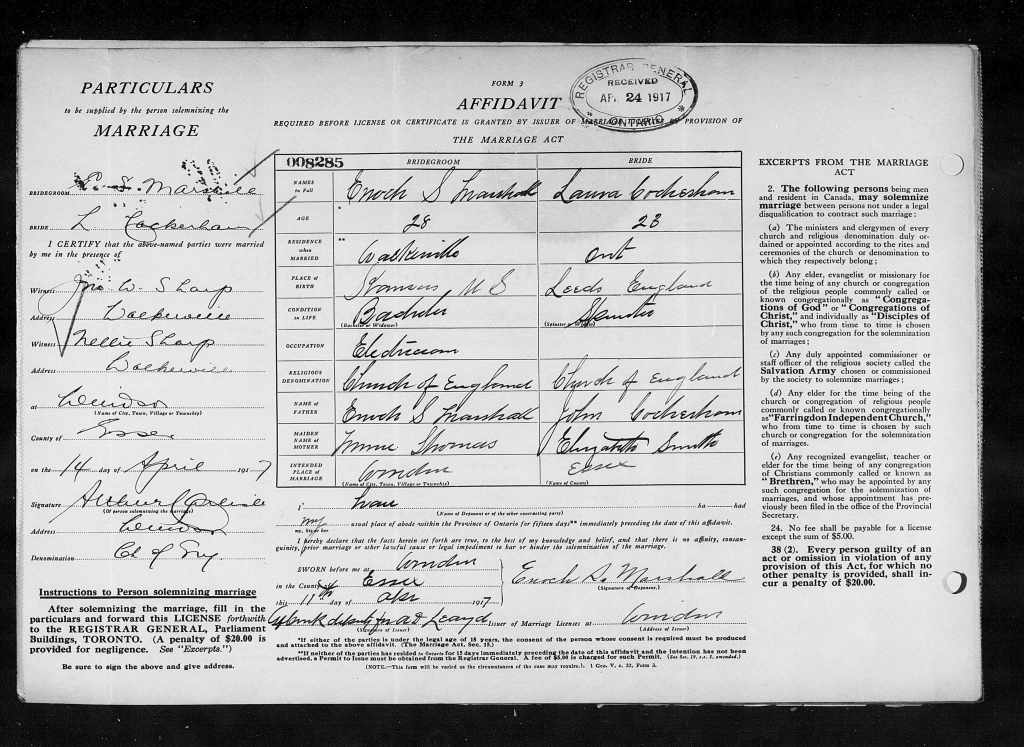 PARTICULARS
to be supplied by the person solemnizing the
MARRIAGE
BRIDEGROOM E. S. Marshall
BRIDE L Cockerham
I CERTIFY that the above-named parties were married
by me in the presence of
Witness Jno W. Sharp
Address Walkerville
Witness Nellie Sharp
Address Walkerville
at Windsor
(Name of City, Town, Village or Township)
County of Essex
on the 14 day of April 1917
Signature Arthur Carlisle
(Of person solemnizing the marriage)
Address Windsor
Denomination Ch of Eng
Instructions to Person solemnizing marriage
After solemnizing the marriage, fill in the
particulars and forward this LICENSE forthwith
to the REGISTRAR GENERAL, Parliament
Buildings, TORONTO. (A penalty of $20.00 is
provided for negligence. See "Excerpts.")
Be sure to sign the above and give address.
FORM 3
AFFIDAVIT
REGISTRAR GENERAL
RECEIVED
AP. 24 1917
ONTARIO
REQUIRED BEFORE LICENSE OR CERTIFICATE IS GRANTED BY ISSUER OF MARRIAGE LICENSES BY PROVISION OF
THE MARRIAGE ACT
008285 BRIDEGROOM BRIDE
NAMES in Full Enoch S Marshall Laura Cockerham
AGE 28 23
RESIDENCE when MARRIED ** Walkerville Ont
PLACE of BIRTH Kansas U S Leeds England
CONDITION in LIFE Bachelor Spinster
(Bachelor or Widower) (Spinster or Widow)
OCCUPATION Electrician
RELIGIOUS DENOMINATION Church of England Church of England
NAME of FATHER Enoch S Marshall John Cockerham
MAIDEN NAME of MOTHER Thomas Elizabeth Smith
INTENDED PLACE of MARRIAGE Windsor Essex
(Name of City, Town, Village or Township) (Name of County)
I have ha— had
(Name of Deponent or of the other contracting party)
my usual place of abode within the Province of Ontario for fifteen days** immediately preceding the date of this affidavit.
my, his or her
I hereby declare that the facts herein set forth are true, to the best of my knowledge and belief, and that there is no affinity, consanguinity, prior marriage or other lawful cause or legal impediment to bar or hinder the solemnization of the marriage.
SWORN before me at Windsor
in the County of Essex
this 11th day of Apr 1917
Enoch S. Marshall
(Signature of Deponent.)
deputy for A D Issuer of Marriage Licenses at Windsor
(Signature of Issuer) (Address of Issuer)
*If either of the parties is under the legal age of 18 years, the consent of the person whose consent is required must be produced
and attached to the above affidavit. (The Marriage Act, Sec. 15.)
**If neither of the parties has resided in Ontario for 15 days immediately preceding the date of this affidavit and the intention has not been
advertised, a Permit to Issue must be obtained from the Registrar General. A fee of $5.00 is charged for such Permit. (See Sec. 19, s.s. 5, amended.)
(NOTE.—This form will be varied as the circumstances of the case may require.). 1 Geo. V. c. 32, Form 3.
EXCERPTS FROM THE MARRIAGE
ACT
2. The following persons being men
and resident in Canada, may solemnize
marriage between persons not under a legal
disqualification to contract such marriage:
(a) The ministers and clergymen of every
church and religious denomination duly or-
dained or appointed according to the rites and
ceremonies of the church or denomination to
which they respectively belong;
(b) Any elder, evangelist or missionary for
the time being of any church or congregation
of the religious people commonly called or
known congregationally as "Congrega-
tions of God" or "Congregations of
Christ," and individually as "Disciples of
Christ," who from time to time is chosen
by any such congregation for the solemnization
of marriages;
(c) Any duly appointed commissioner or
staff officer of the religious society called the
Salvation Army chosen or commissioned
by the society to solemnize marriages;
(d) Any elder for the time being of the
church or congregation of religious people
commonly called or known congregationally
as "Farringdon Independent Church,"
who from time to time is chosen by such
church or congregation for the solemnization
of marriages.
(e) Any recognized evangelist, teacher or
elder for the time being of any congregation
of Christians commonly called or known as
"Brethren," who may be appointed by any
such congregation for the solemnization of
marriages, and whose appointment has pre-
viously been filed in the office of the Provincial
Secretary.
24. No fee shall be payable for a license
except the sum of $5.00.
38 (2). Every person guilty of an
act or omission in violation of any
provision of this Act, for which no
other penalty is provided, shall in-
cur a penalty of $20.00.